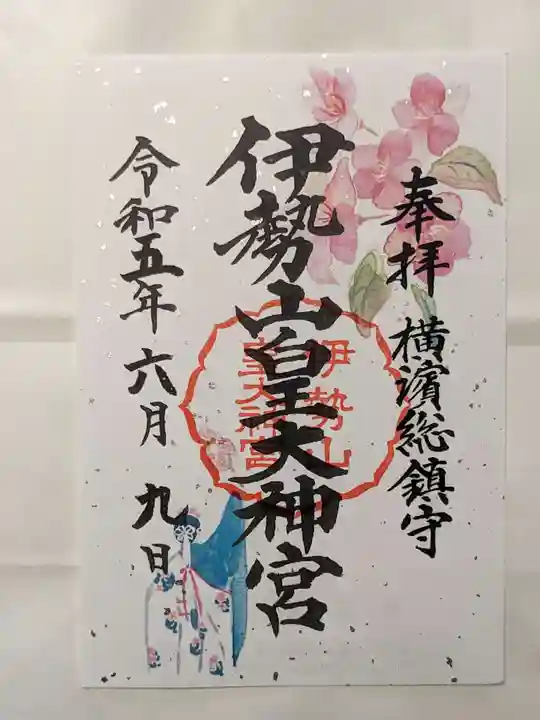 奉拝 横濱総鎮守
伊勢山皇大神宮
伊勢山
皇大神宮
令和五年六月九日